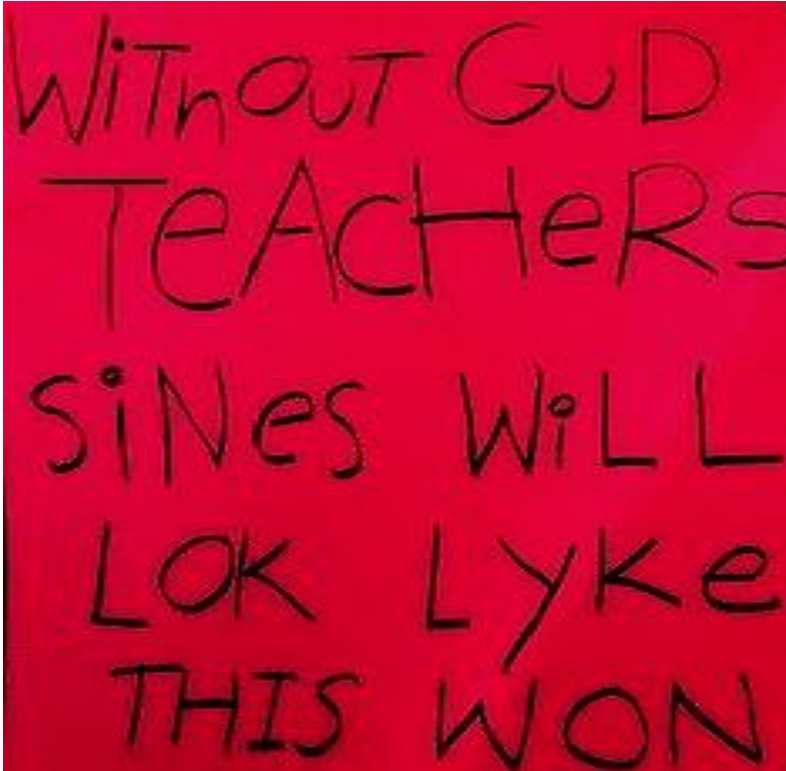 WiThOuT GuD
TeACHeRS
SiNeS WiLL
LOK LyKe
THIS WON